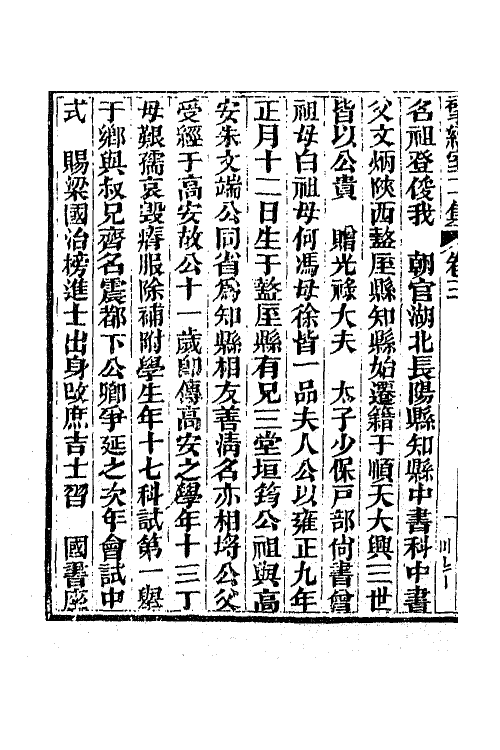 揅經室二集 卷三
名祖登俊我　朝官湖北長陽縣知縣中書科中書
父文炳陝西盩厔縣知縣始遷籍于順天大興三世
皆以公貴　贈光祿大夫　太子少保戸部尙書曾
祖母白祖母何馮母徐皆一品夫人公以雍正九年
正月十二日生于盩厔縣有兄三堂垣筠公祖與高
安朱文端公同省爲知縣相友善淸名亦相埒公父
受經于高安故公十一歲卽傳高安之學年十三丁
母艱孺哀毀瘠服除補附學生年十七科試第一舉
于鄉與叔兄齊名震都下公卿爭延之次年會試中
式　賜梁國治榜進士出身改庶吉士習　國書座